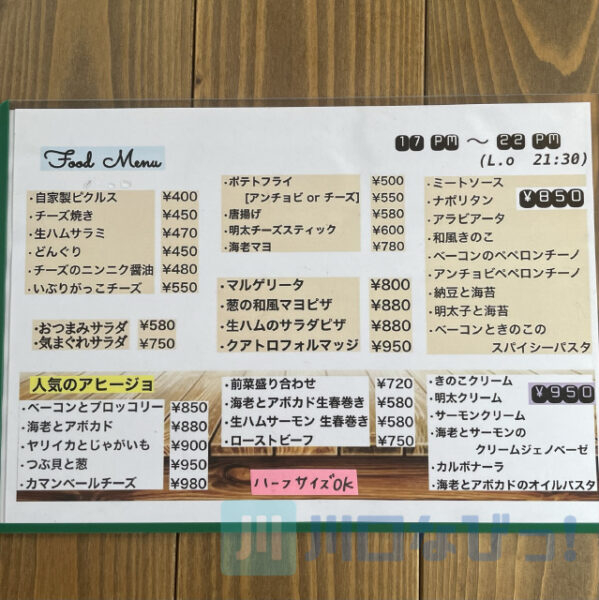 Food Menu
17 PM ～ 22 PM
(L.o 21:30)
・自家製ピクルス ¥400
・チーズ焼き ¥450
・生ハムサラミ ¥470
・どんぐり ¥450
・チーズのニンニク醤油 ¥480
・いぶりがっこチーズ ¥550
・おつまみサラダ ¥580
・気まぐれサラダ ¥750
人気のアヒージョ
・ベーコンとブロッコリー ¥850
・海老とアボカド ¥880
・ヤリイカとじゃがいも ¥900
・つぶ貝と葱 ¥950
・カマンベールチーズ ¥980
・ポテトフライ ¥500
[アンチョビ or チーズ] ¥550
・唐揚げ ¥580
・明太チーズスティック ¥600
・海老マヨ ¥780
・マルゲリータ ¥800
・葱の和風マヨピザ ¥880
・生ハムのサラダピザ ¥880
・クアトロフォルマッジ ¥950
・前菜盛り合わせ ¥720
・海老とアボカド生春巻き ¥580
・生ハムサーモン 生春巻き ¥580
・ローストビーフ ¥750
ハーフサイズOK
・ミートソース
・ナポリタン ¥850
・アラビアータ
・和風きのこ
・ベーコンのペペロンチーノ
・アンチョビペペロンチーノ
・納豆と海苔
・明太子と海苔
・ベーコンときのこの
スパイシーパスタ
・きのこクリーム
・明太クリーム ¥950
・サーモンクリーム
・海老とサーモンの
クリームジェノベーゼ
・カルボナーラ
・海老とアボカドのオイルパスタ
川口なびっ!